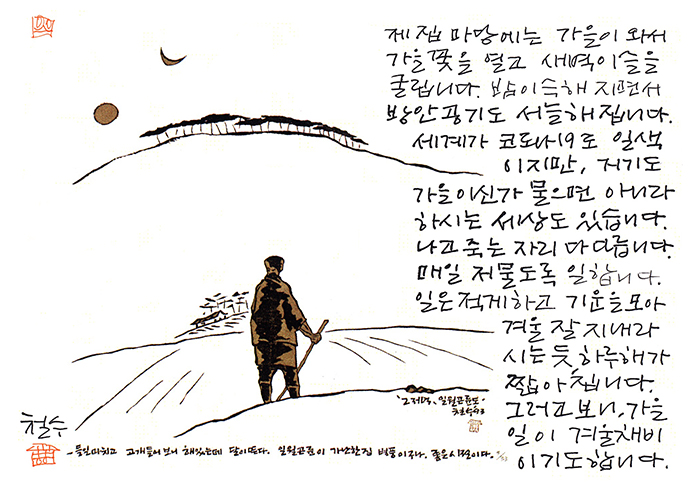 제 집 마당에는 가을이 와서
가을꽃을 열고 새벽이슬을
굴립니다. 밤이 숙해 지면서
방안 공기도 서늘해 집니다.
세계가 코로나19로 일색
이지만, 거기도
가을이신가 물으면 아니라
하시는 세상도 있습니다.
나고 죽는 자리 다 다릅니다.
매일 저물도록 일합니다.
일은 적게하고 기운을 모아
겨울 잘 지내라
시는 듯 하루해가
짧아칩니다.
그러고보니, 가을
일이 겨울채비
이기도 합니다.
일월곤륜도
철수
철수
- 들일 마치고 고개들어 보니 해있는데 달이 뜬다. 일월곤륜이 가난한 집 병풍이구나. 좋은 시절이다.